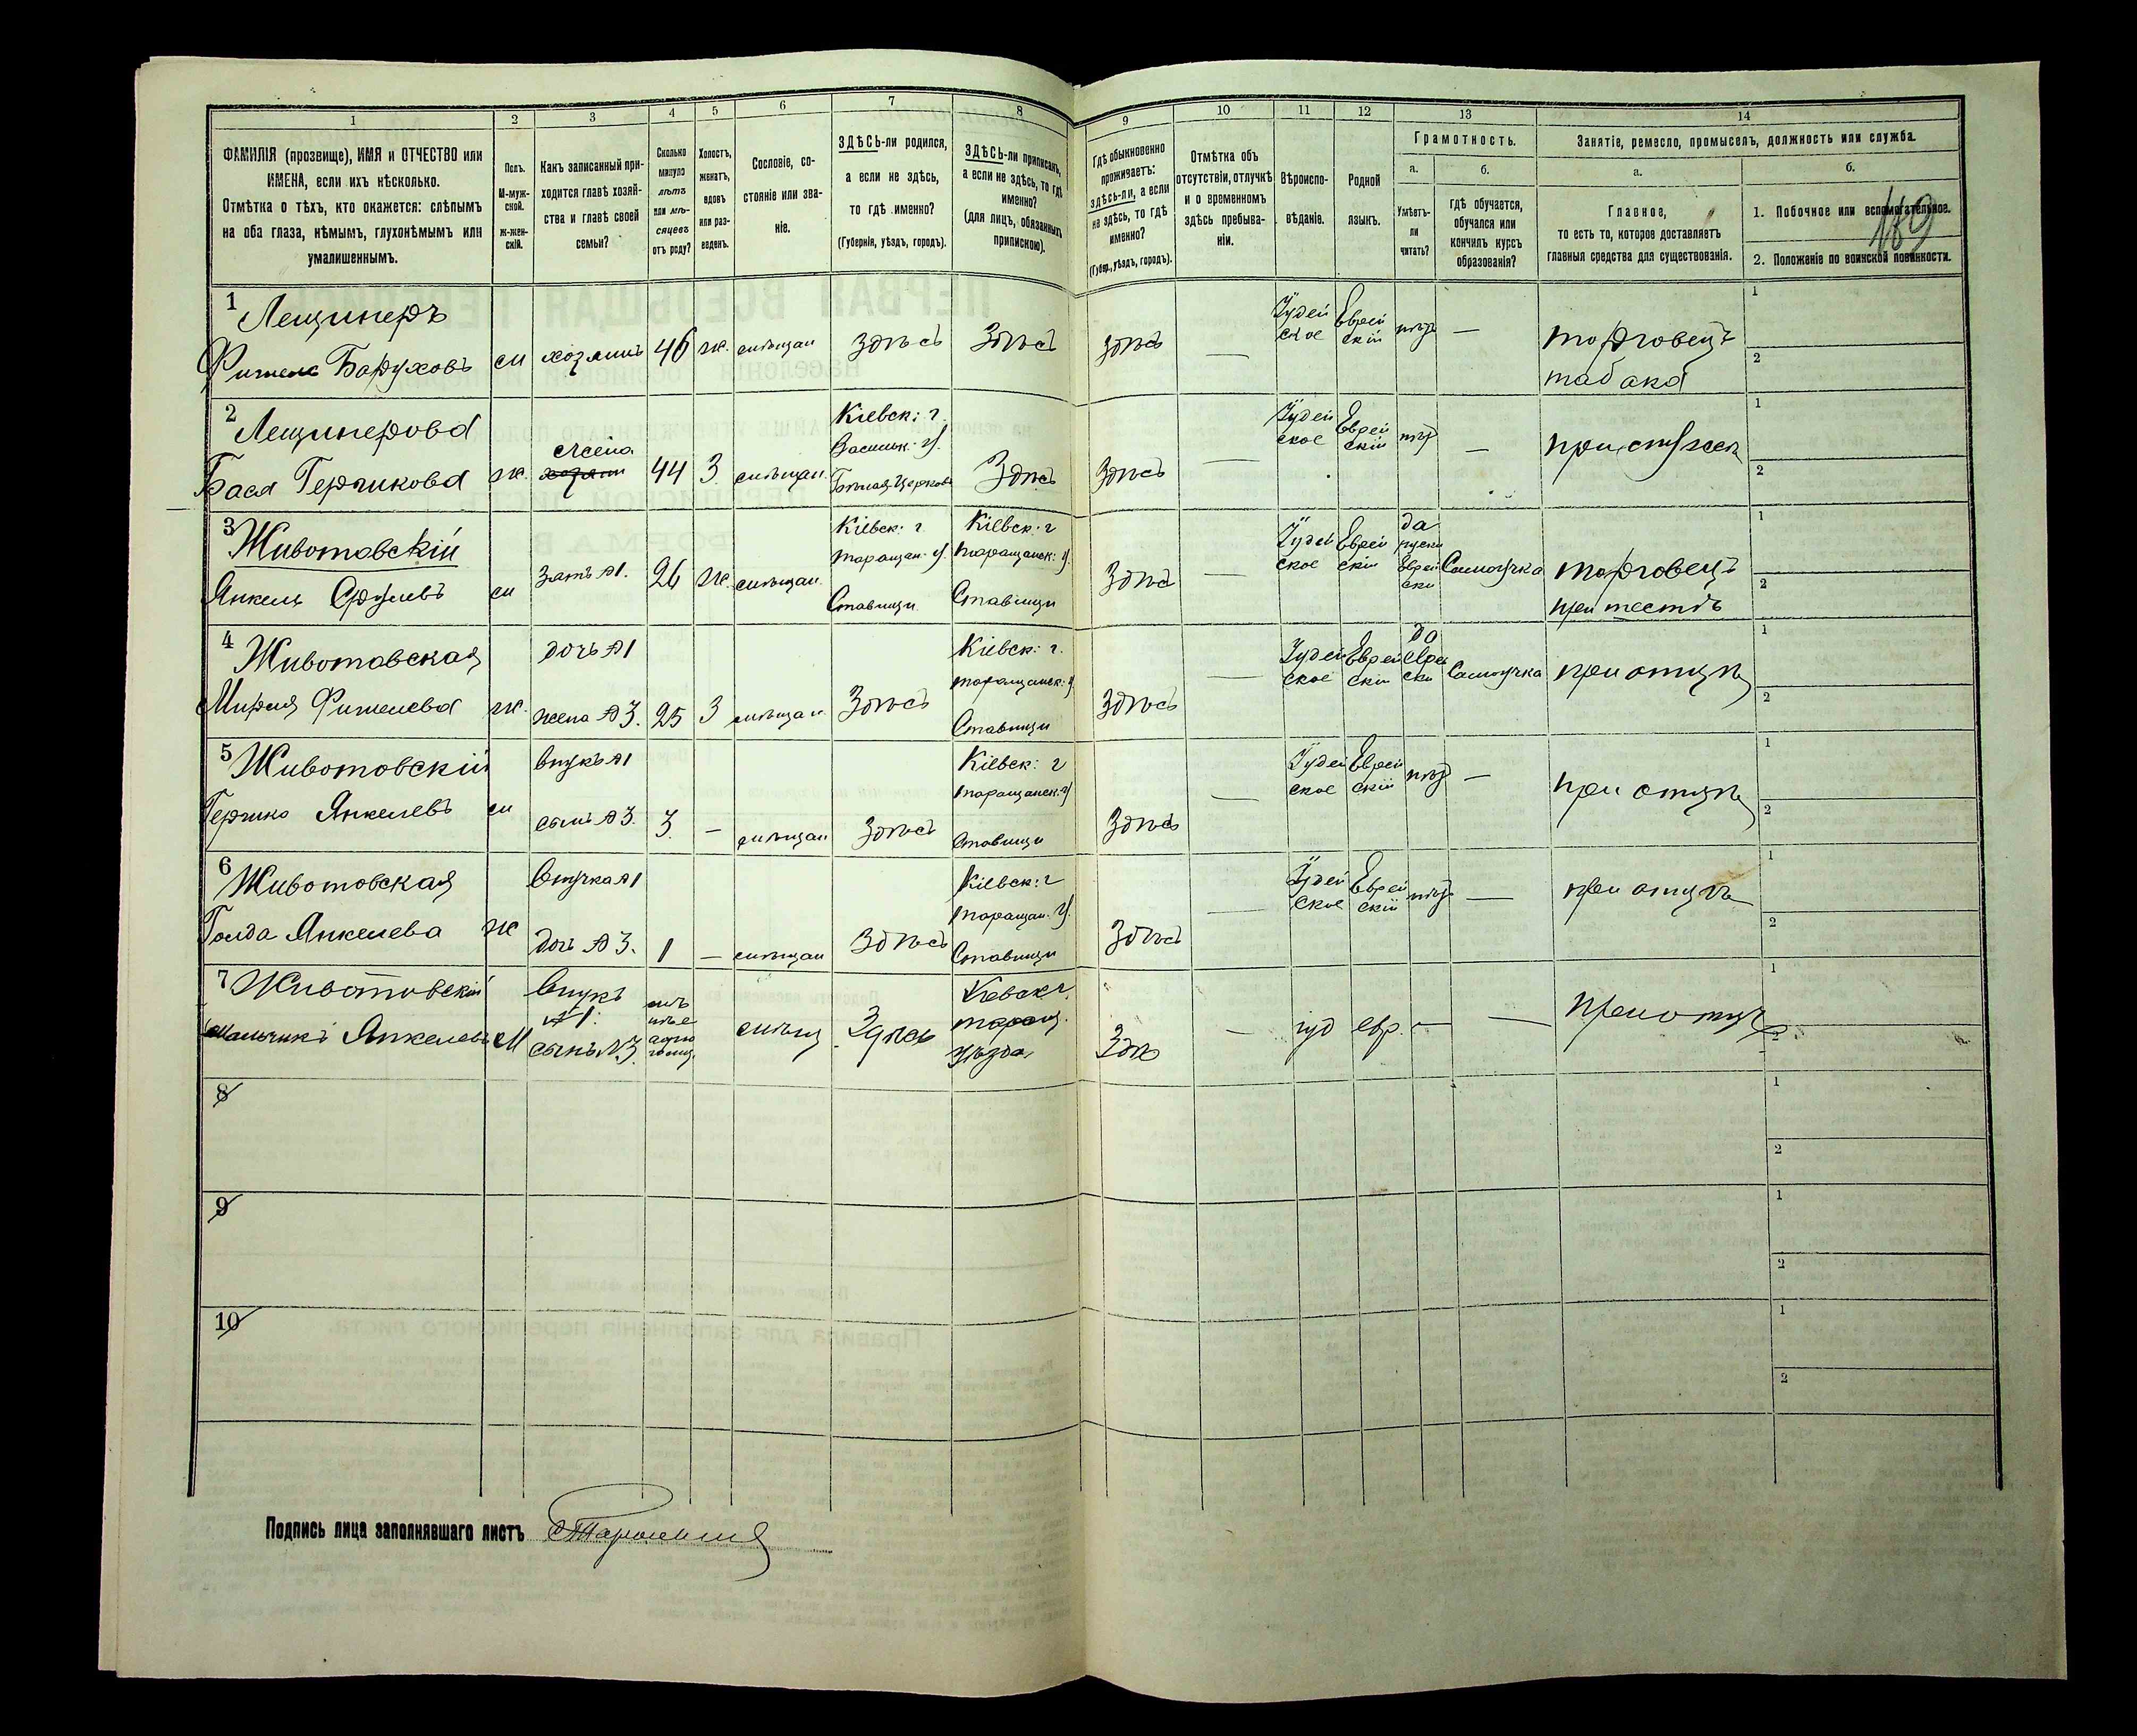 1 2 3 4 5 6 7 8 9 10 11 12 13 14
ФАМИЛІЯ (прозвище), ИМЯ и ОТЧЕСТВО или
ИМЕНА, если ихъ нѣсколько.
Отмѣтка о тѣхъ, кто окажется: слѣпымъ
на оба глаза, нѣмымъ, глухонѣмымъ или
умалишеннымъ.
Полъ.
М-муж-
ской.
Ж-жен-
скій.
Какъ записанный при-
ходится главѣ хозяй-
ства и главѣ своей
семьи?
Сколько
минуло
лѣтъ
или мѣ-
сяцевъ
отъ роду?
Холостъ,
женатъ,
вдовъ
или раз-
веденъ.
Сословіе, со-
стояніе или зва-
ніе.
ЗДѢСЬ-ли родился,
а если не здѣсь,
то гдѣ именно?
(Губернія, уѣздъ, городъ).
ЗДѢСЬ-ли приписанъ,
а если не здѣсь, то гдѣ
именно?
(для лицъ, обязанныхъ
припискою).
Гдѣ обыкновенно
проживаетъ:
здѣсь-ли, а если
не здѣсь, то гдѣ
именно?
(Губер., уѣздъ, городъ).
Отмѣтка объ
отсутствіи, отлучкѣ
и о временномъ
здѣсь пребыва-
ніи.
Вѣроиспо-
вѣданіе.
Родной
языкъ.
Грамотность.
а.
Умѣетъ-
ли
читать?
б.
Гдѣ обучается,
обучался или
кончилъ курсъ
образованія?
Занятіе, ремесло, промыселъ, должность или служба.
а.
Главное,
то есть то, которое доставляетъ
главныя средства для существованія.
б.
1. Побочное или вспомогательное.
2. Положеніе по воинской повинности.
189
1 Лещинеръ
Фишель Баруховъ м хозяинъ 46 ж. мѣщан здѣсь Здѣсь здѣсь —
Іудей
ское
Еврей
скій
нѣтъ —
торговецъ
табака
1
2
2 Лещинерова
Бася Гершкова ж.
жена
хозяин
44 З. мѣщан.
Кіевск: г.
Васильк: у.
Бѣлая Церковь
Здѣсь Здѣсь —
Іудей
ское
Еврей
скій
нѣтъ —
при мужѣ
1
2
3 Животовскій
Янкель Срулевъ м зять №1. 26 ж. мѣщан.
Кіевск: г
таращан: у.
Ставищи
Кіевск: г
таращанск: у.
Ставищи
Здѣсь —
Іудей
ское
Еврей
скій
да
руски
Еврей
ски
Самоучка
торговецъ
при тестѣ
1
2
4 Животовская
Мирля Фишелева ж.
дочь №1
жена №3.
25 З мѣщан Здѣсь
Кіевск: г.
таращанск: у
Ставищи
Здѣсь —
Іудей
ское
Еврей
скій
да
Евре
ски
Самоучка
при отцѣ
1
2
5 Животовскій
Гершко Янкелевъ м
внукъ №1
сынъ №3.
3. — мѣщан Здѣсь
Кіевск: г
таращанск: у
Ставищи
Здѣсь —
Іудей
ское
Еврей
скій
нѣтъ —
при отцѣ
1
2
6 Животовская
Голда Янкелева ж
Внучка №1
дочь №3.
1 — мѣщан Здѣсь
Кіевск: г
таращан: у.
Ставищи
Здѣсь —
Іудей
ское
Еврей
скій
нѣтъ —
при отцѣ
1
2
7 Животовскій
мальчикъ Янкелевъ М
Внукъ
№1.
сынъ №3.
мѣщ Здѣсь
Кіевск г.
таращ.
уѣзда
Здѣ —
іуд евр. — —
при отцѣ
1
2
8
1
2
9
1
2
10
1
2
Подпись лица заполнявшаго листъ